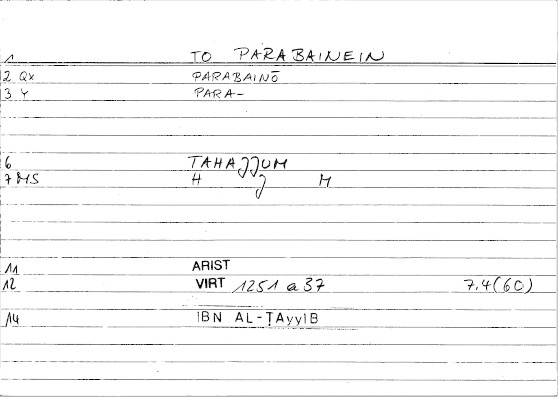 1 TO PARABAINEIN
2 QX PARABAINŌ
3 Y PARA-
6 TAHAJJUM
7 MS H J M
11 ARIST
12 VIRT 1251 a 37 7.4(60)
14 IBN AL-ṬAyyIB